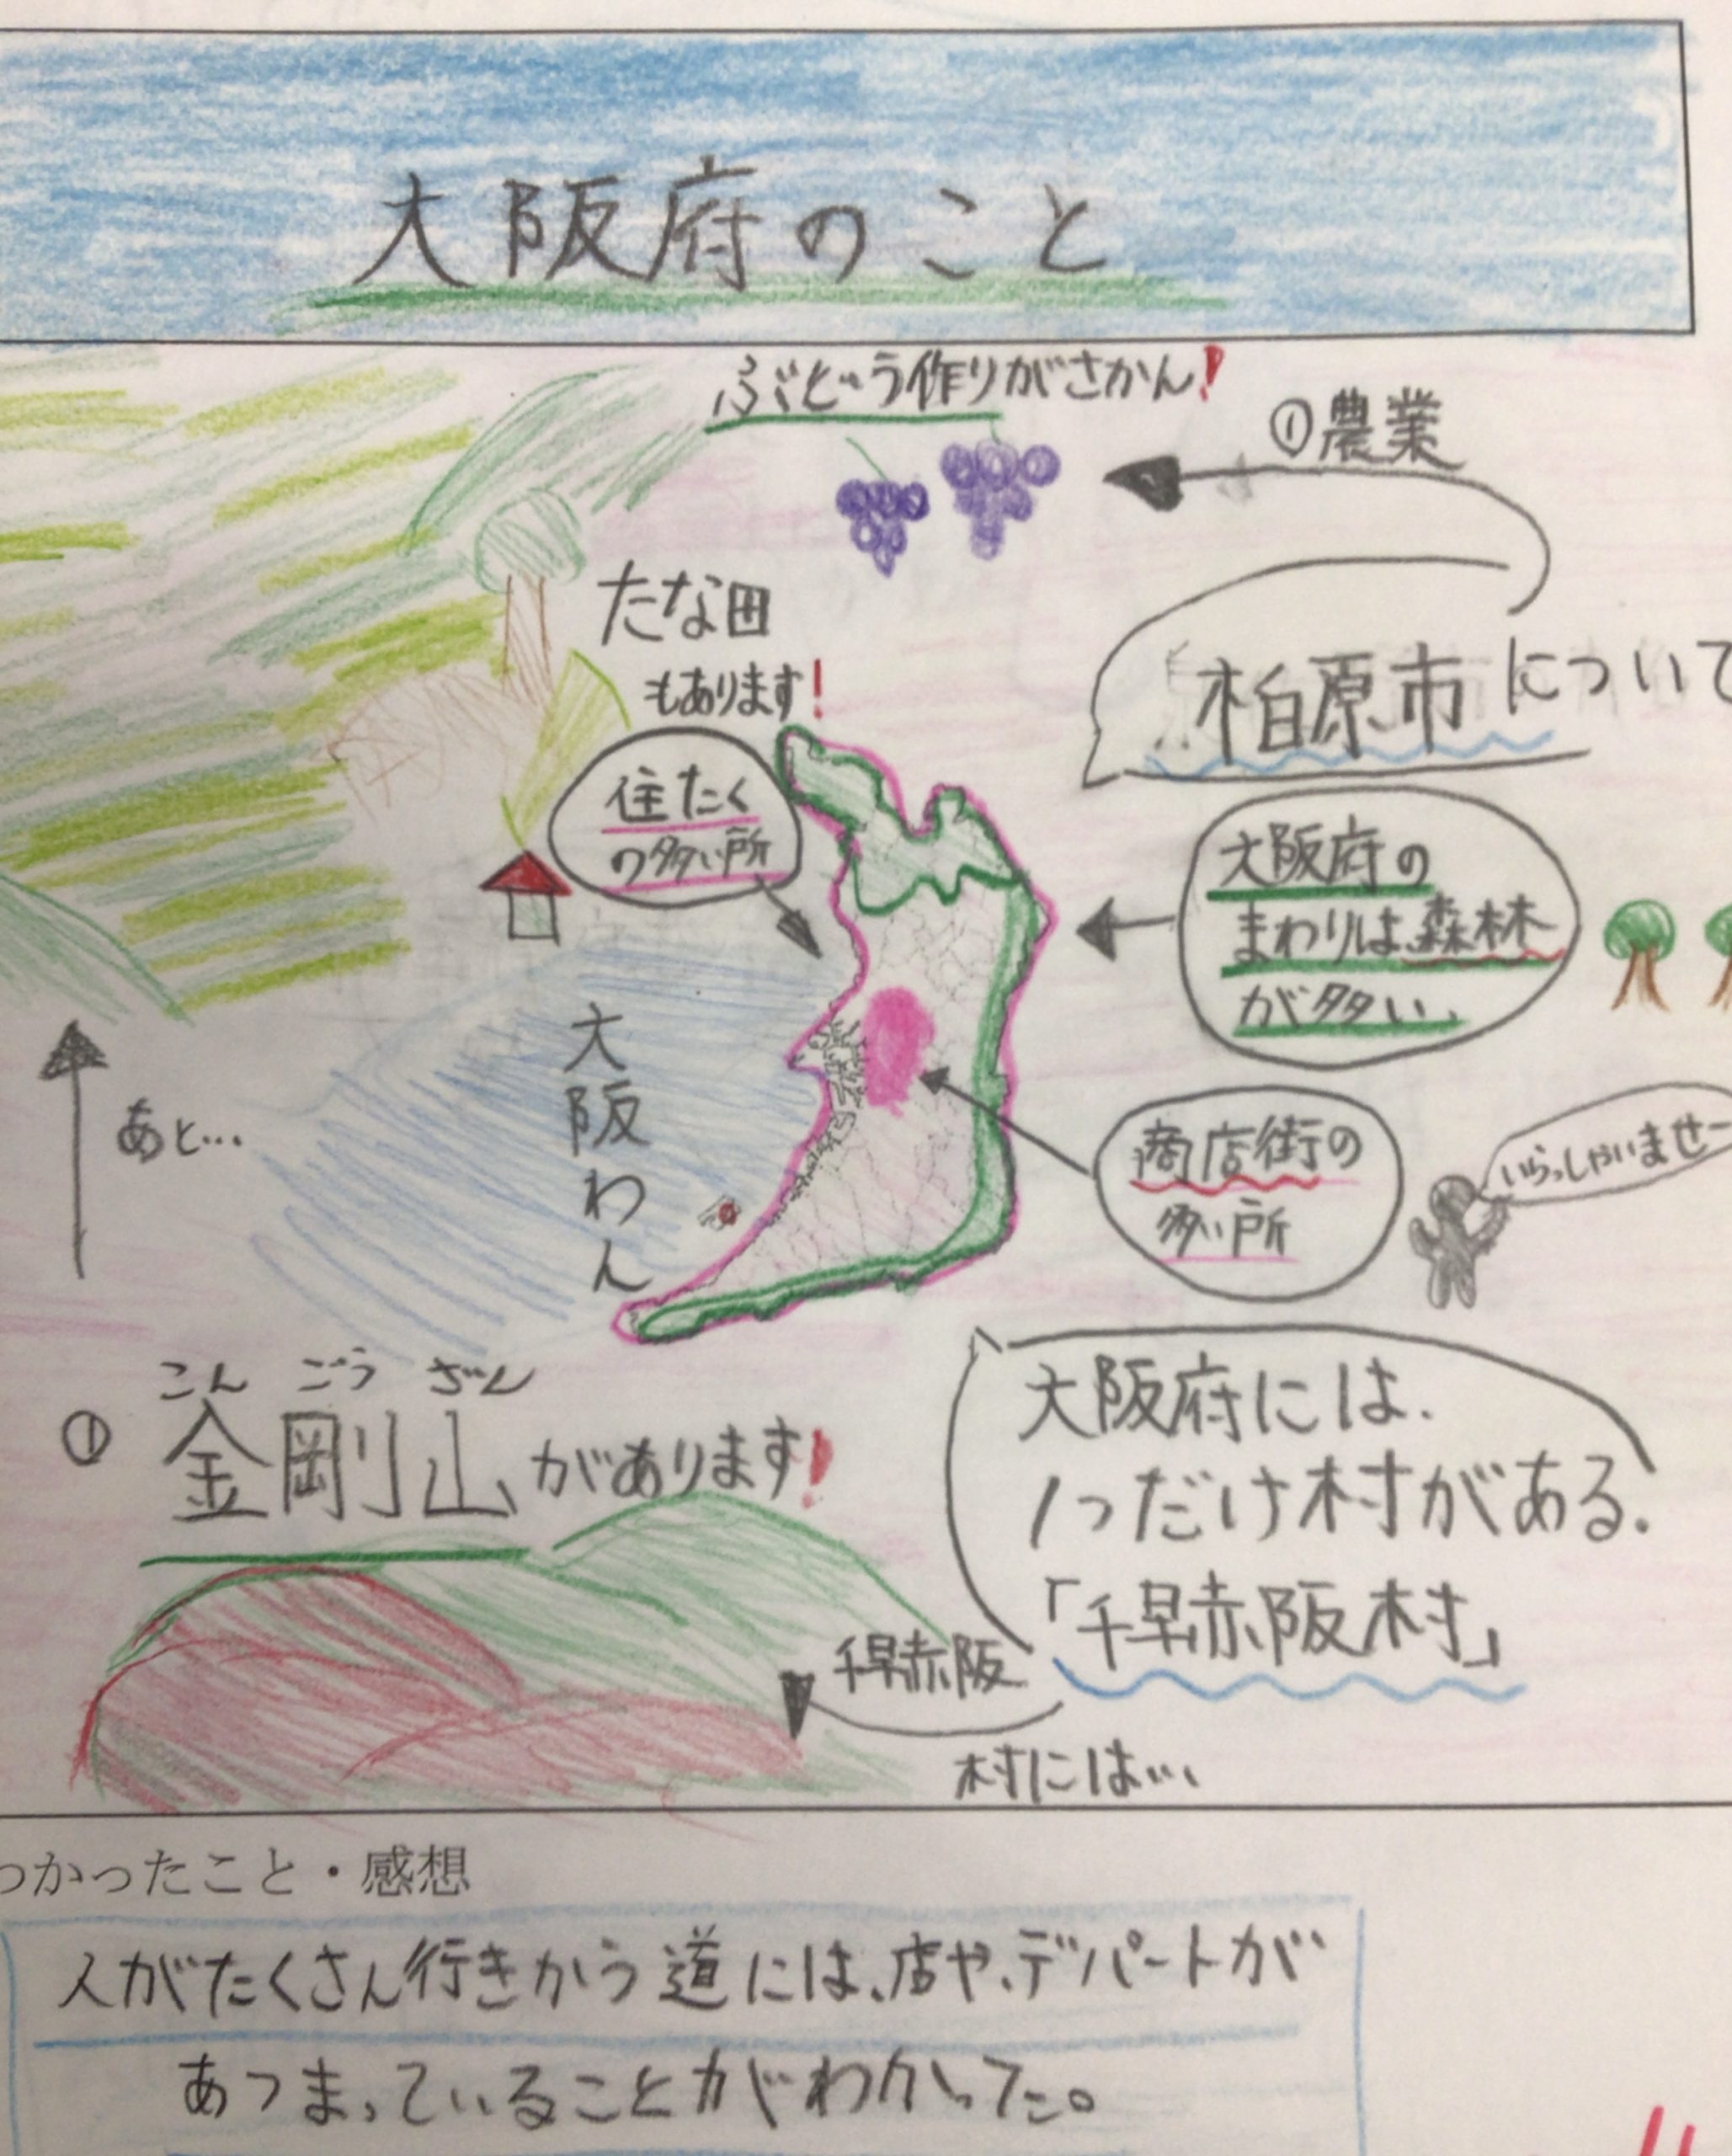 大阪府のこと
ぶどう作りがさかん!
①農業
柏原市について
たな田
もあります!
住たく
の多い所
大阪府の
まわりは森林
が多い、
大阪わん
商店街の
多い所
いらっしゃいませー
あと…
大阪府には、
1つだけ村がある.
「千早赤阪村」
千早赤阪
村には…
こんごうざん
① 金剛山があります!
つかったこと・感想
人がたくさん行きかう道には、店や、デパートが
あつまっていることがわかった。